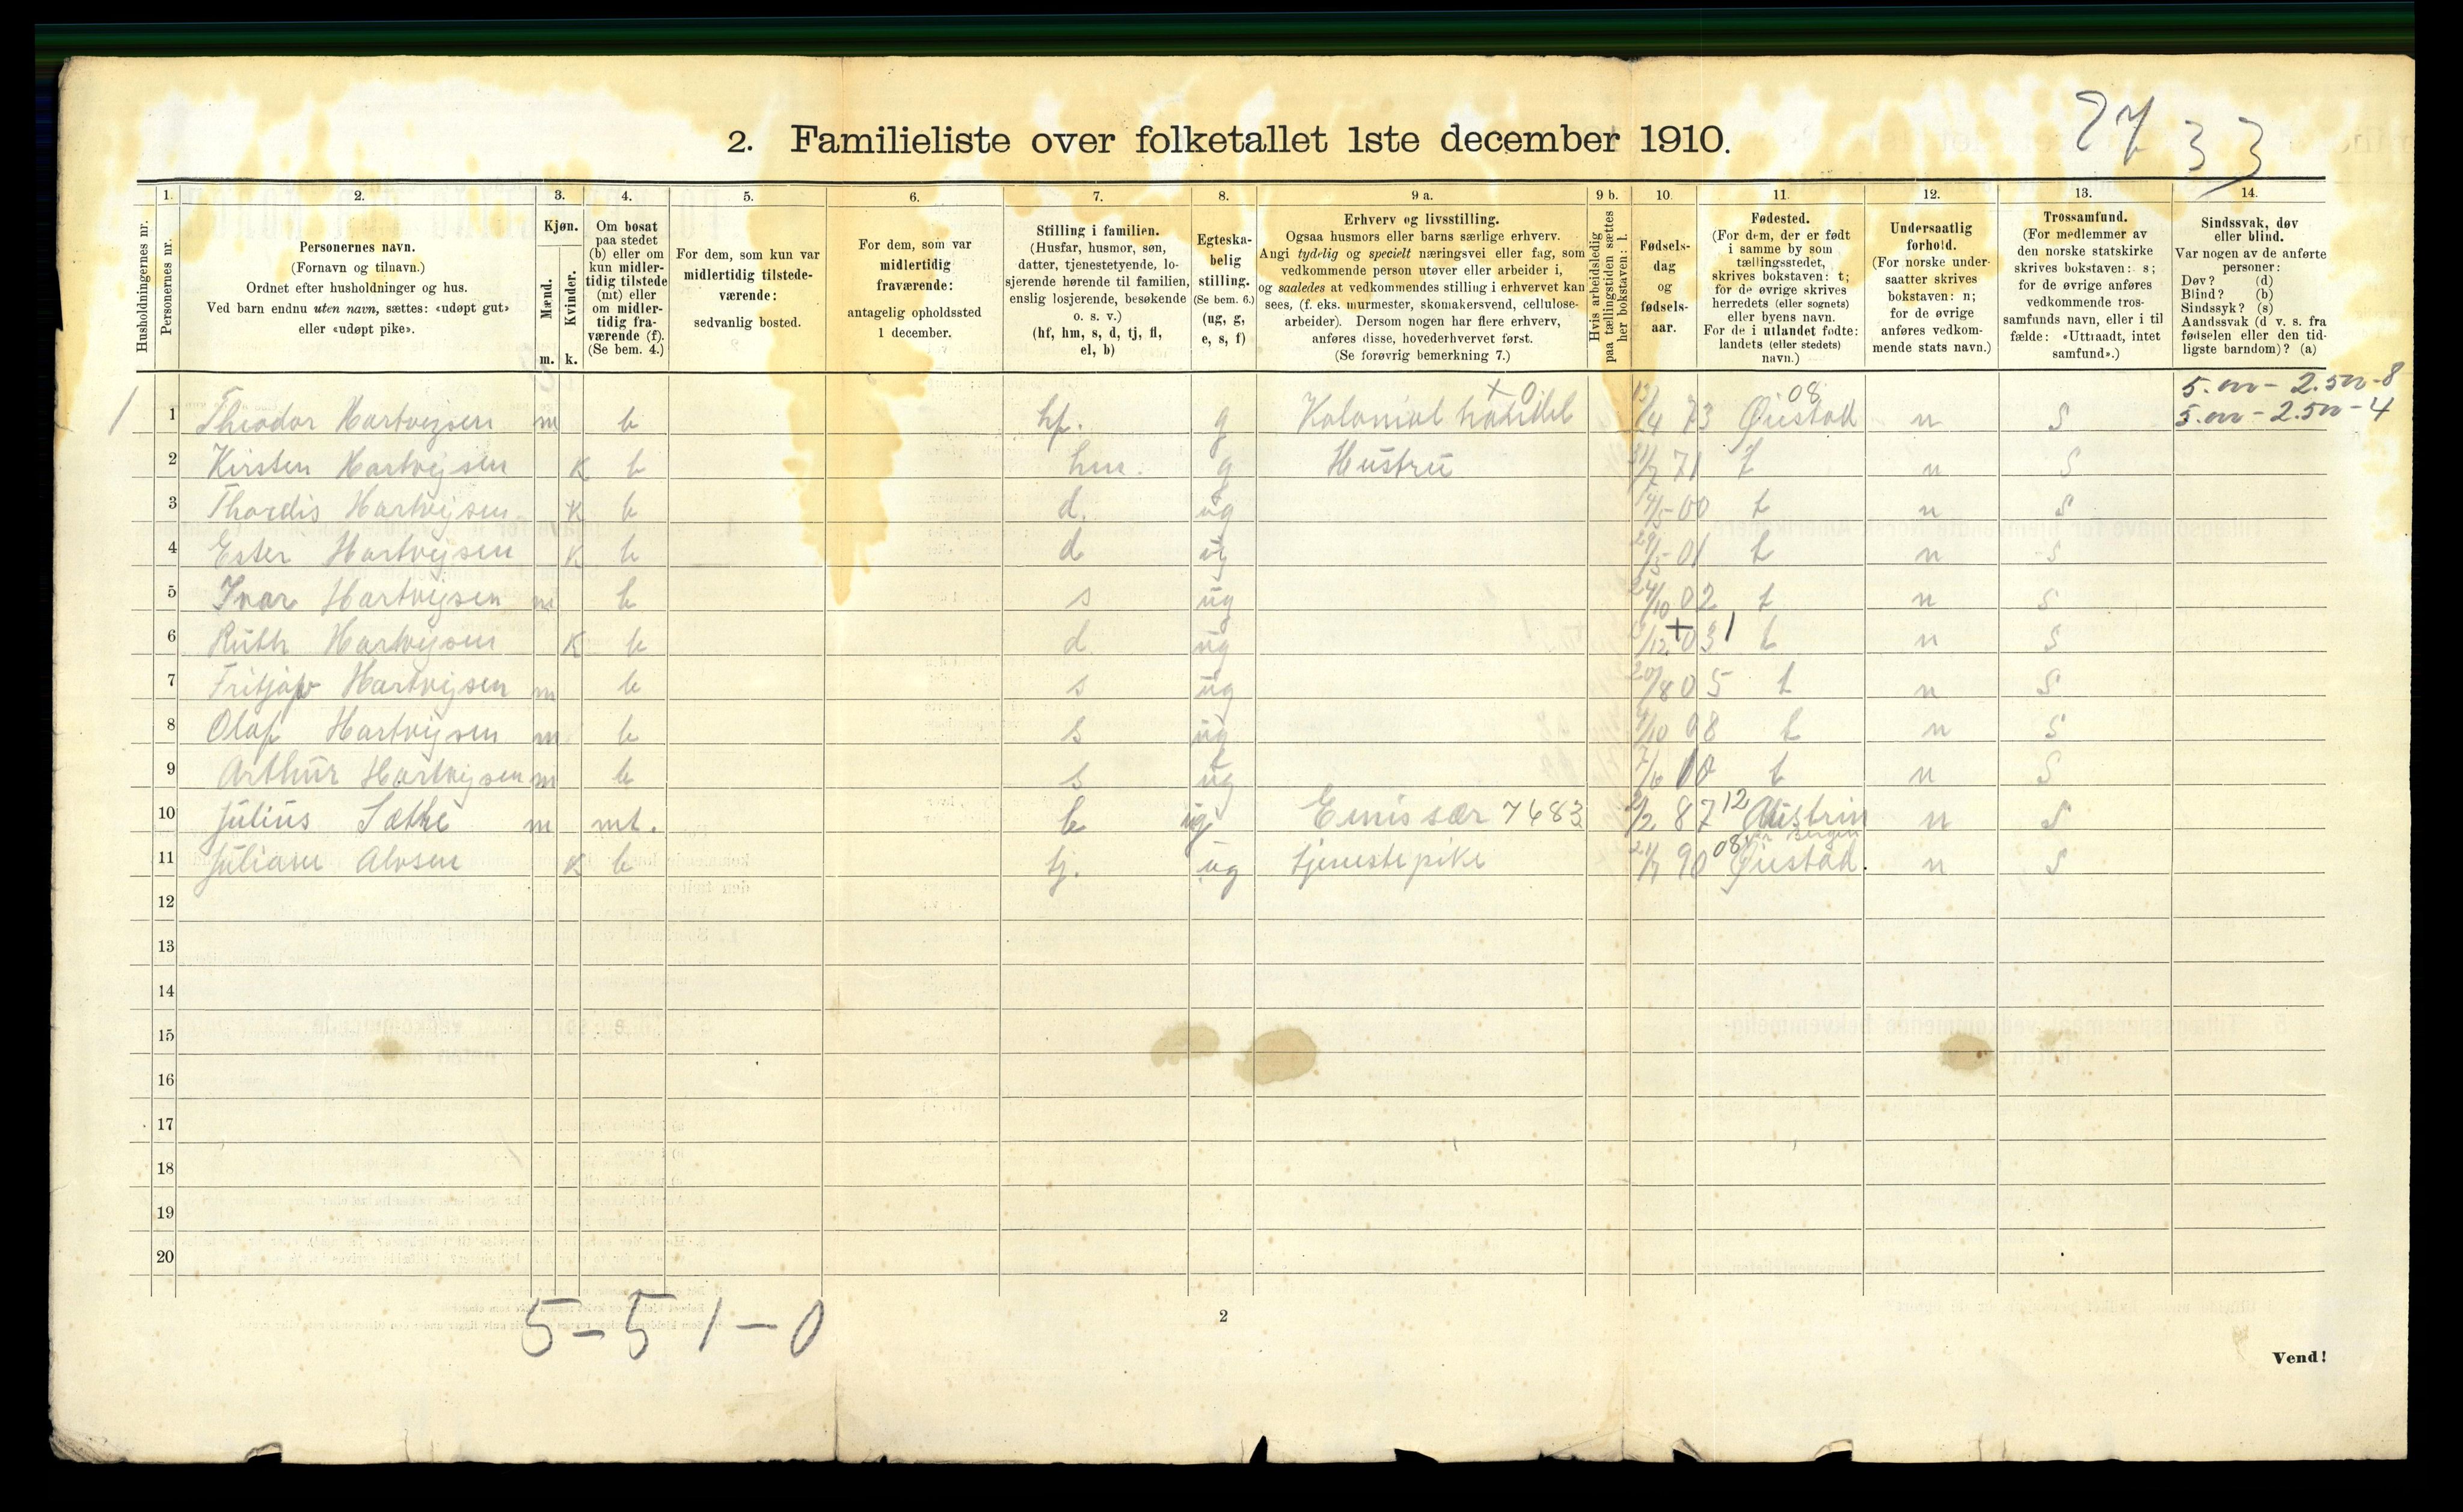 27 33
2. Familieliste over folketallet 1ste december 1910.
Husholdningernes nr.
1. Personernes nr.
2. Personernes navn. (Fornavn og tilnavn.) Ordnet efter husholdninger og hus. Ved barn endnu uten navn, sættes: «udøpt gut» eller «udøpt pike».
3. Kjøn. Mænd. m. Kvinder. k.
4. Om bosat paa stedet (b) eller om kun midlertidig tilstede (mt) eller om midlertidig fraværende (f). (Se bem. 4.)
5. For dem, som kun var midlertidig tilstedeværende: sedvanlig bosted.
6. For dem, som var midlertidig fraværende: antagelig opholdssted 1 december.
7. Stilling i familien. (Husfar, husmor, søn, datter, tjenestetyende, losjerende hørende til familien, enslig losjerende, besøkende o. s. v.) (hf, hm, s, d, tj, fl, el, b)
8. Egteskabelig stilling. (Se bem. 6.) (ug, g, e, s, f)
9 a. Erhverv og livsstilling. Ogsaa husmors eller barns særlige erhverv. Angi tydelig og specielt næringsvei eller fag, som vedkommende person utøver eller arbeider i, og saaledes at vedkommendes stilling i erhvervet kan sees, (f. eks. murmester, skomakersvend, cellulosearbeider). Dersom nogen har flere erhverv, anføres disse, hovederhvervet først. (Se forøvrig bemerkning 7.)
9 b. Hvis arbeidsledig paa tællingstiden sættes her bokstaven: l.
10. Fødselsdag og fødselsaar.
11. Fødested. (For dem, der er født i samme by som tællingsstedet, skrives bokstaven: t; for de øvrige skrives herredets (eller sognets) eller byens navn. For de i utlandet fødte: landets (eller stedets) navn.)
12. Undersaatlig forhold. (For norske undersaatter skrives bokstaven: n; for de øvrige anføres vedkommende stats navn.)
13. Trossamfund. (For medlemmer av den norske statskirke skrives bokstaven: s; for de øvrige anføres vedkommende trossamfunds navn, eller i tilfælde: «Uttraadt, intet samfund».)
14. Sindssvak, døv eller blind. Var nogen av de anførte personer: Døv? (d) Blind? (b) Sindssyk? (s) Aandssvak (d. v. s. fra fødselen eller den tidligste barndom)? (a)
1 1 Theodor Hartvigsen m b hf. g Kolonial handel 13/4 73 08 Øiestad n S
2 Kirsten Hartvigsen k b hm. g Hustru 31/7 71 t n S
3 Thordis Hartvigsen k b d. ug 14/5 00 t n S
4 Ester Hartvigsen k b d ug 29/5 01 t n S
5 Ivar Hartvigsen m b s ug 24/10 02 t n S
6 Ruth Hartvigsen k b d ug /12 03 t n S
7 Fritjof Hartvigsen m b s ug 20/8 05 t n S
8 Olaf Hartvigsen m b s ug /10 08 t n S
9 Arthur Hartvigsen m b s ug 7/10 10 t n S
10 Julius Sæthe m mt. b ug Emissær 7683 2/2 87 12 n S
11 Juliane Alvsen k b tj. ug tjenestepike 90 08 Øiestad. n S
12
13
14
15
16
17
18
19
20
5 - 5 1 - 0
2
Vend!